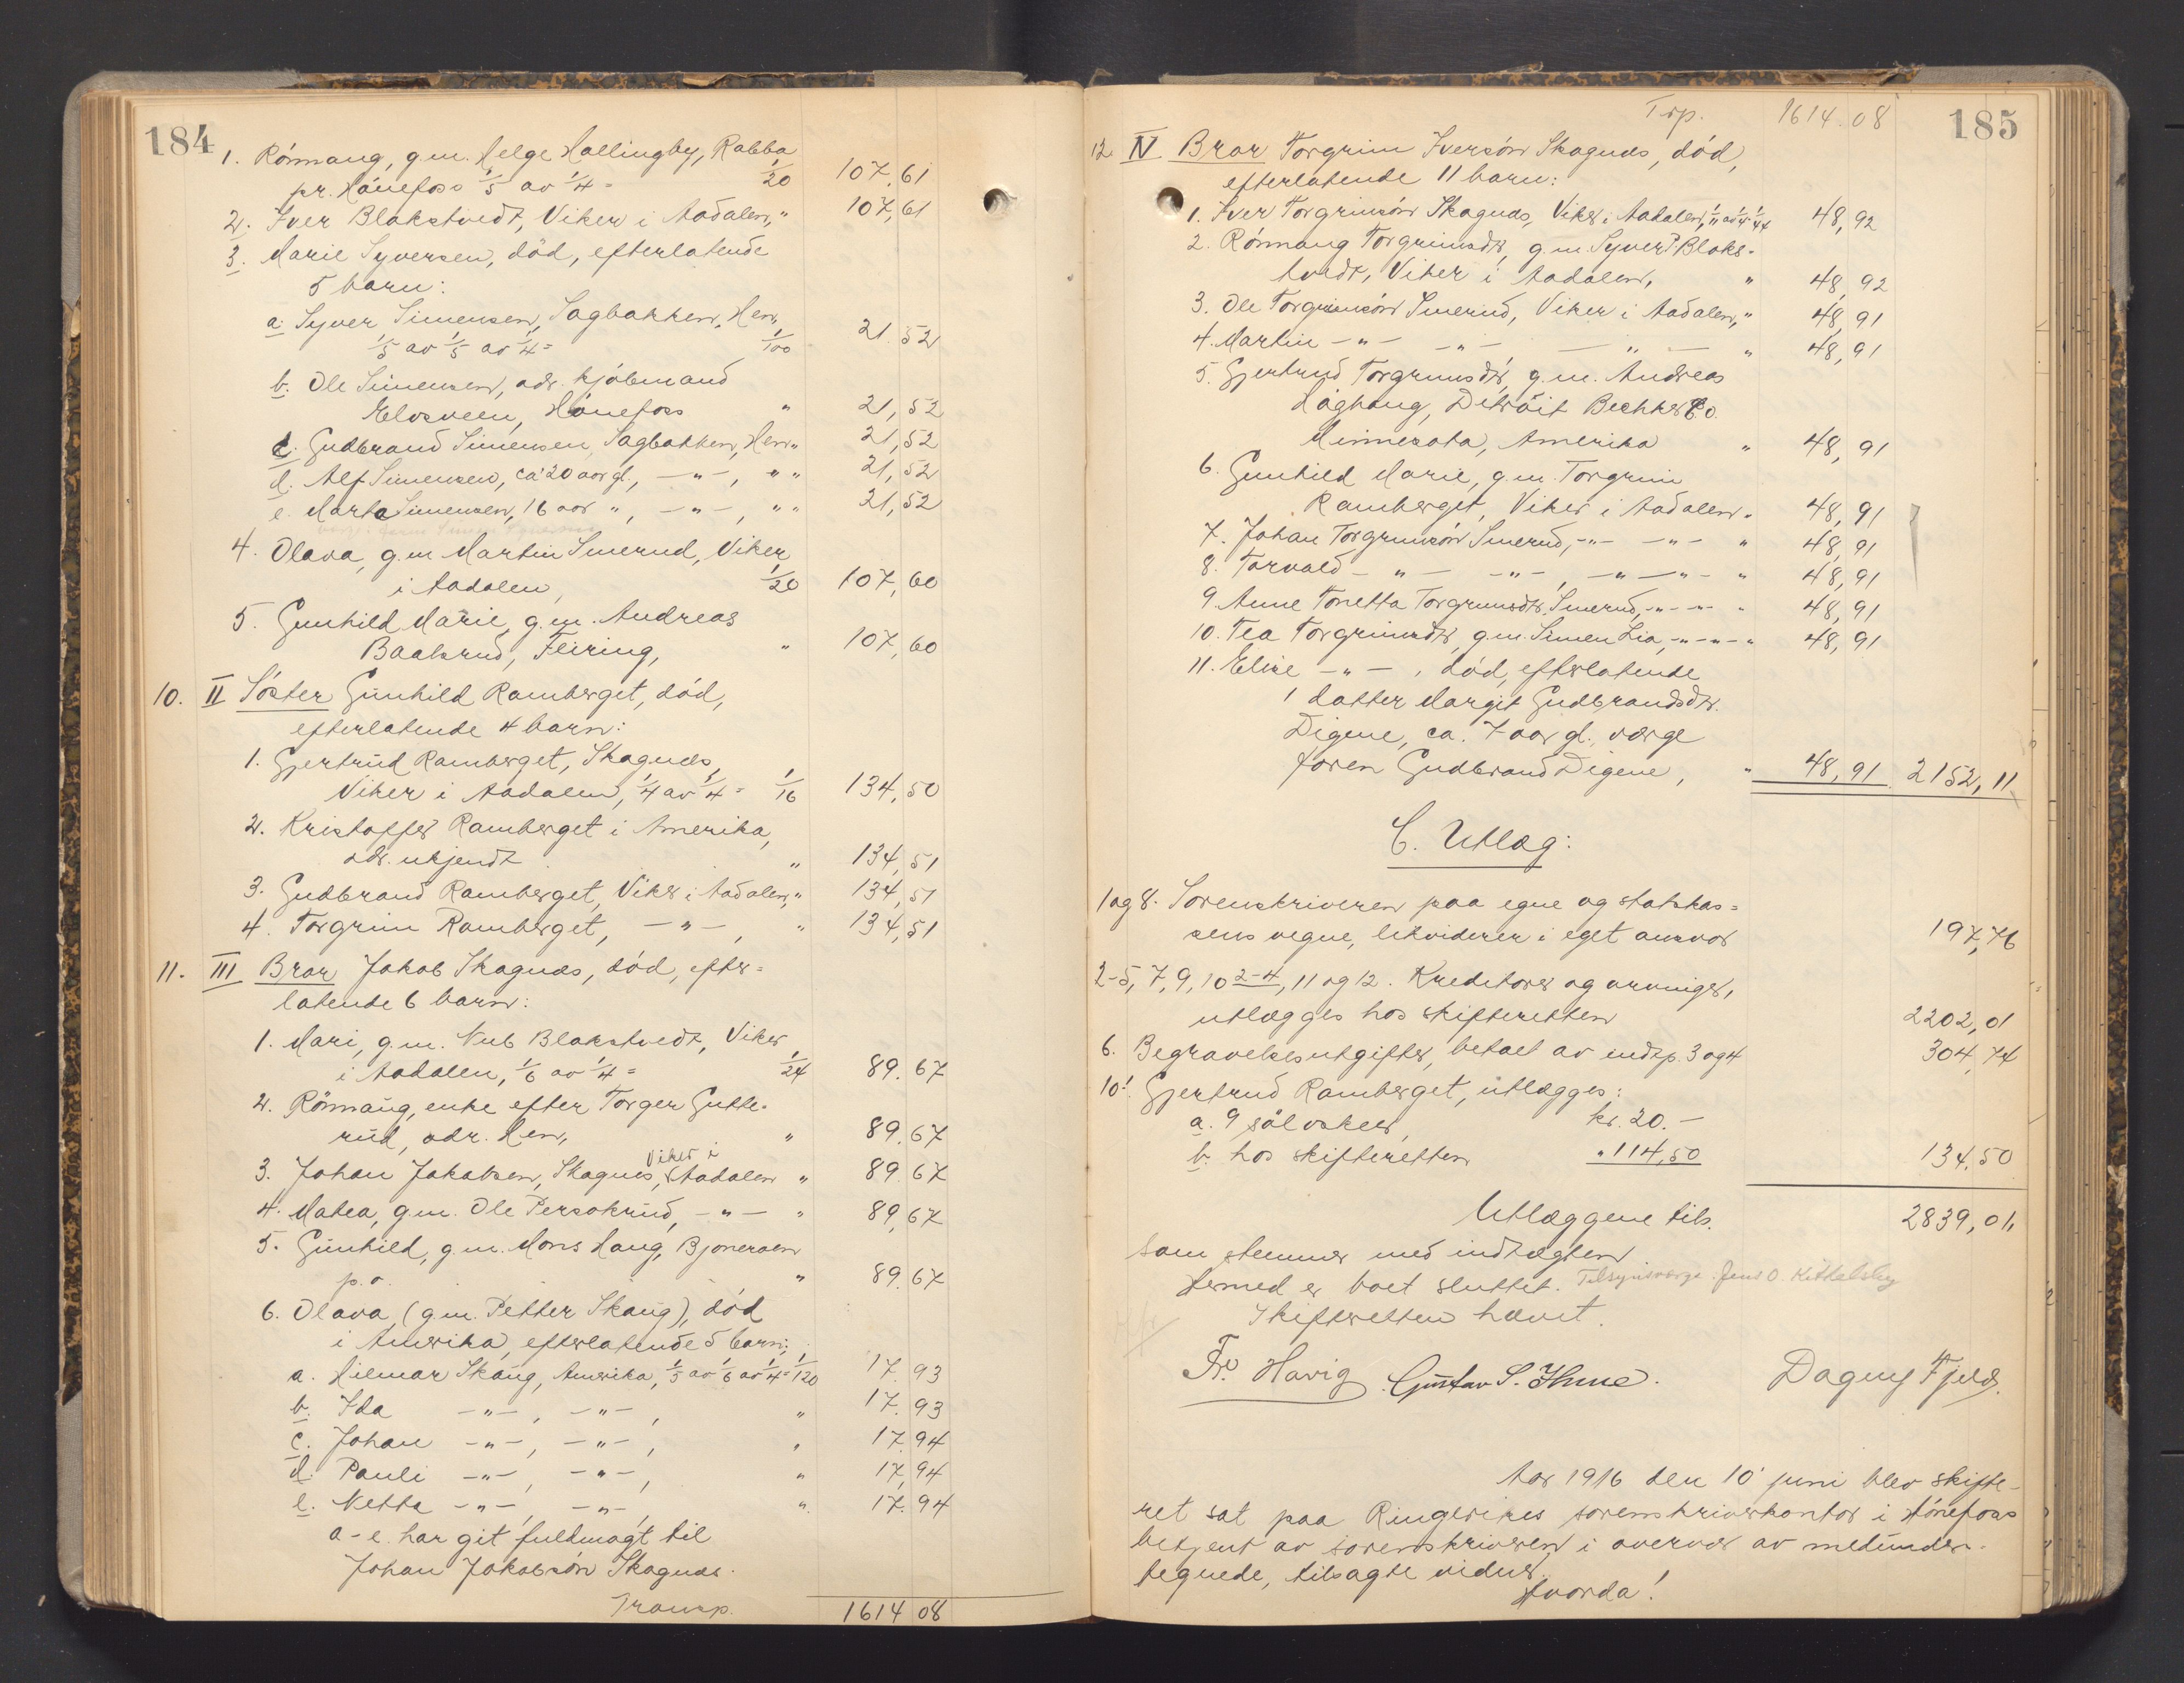 184
1. Rönnaug, g.m. Helge Hallingby, Rabba
pr. Hönefoss 1/5 av 1/4 = 1/20 107,61
2. Iver Blakstvedt, Viker i Aadalen, " 107,61
3. Marie Syversen, död, efterlatende
5 barn:
a. Syver Simensen, Sagbakken, Hen,
1/5 av 1/5 av 1/4 = 1/100 21.52
b. Ole Simensen, adr. kjöbmand
Elvsveen, Hönefoss " 21,52
c. Gudbrand Simensen, Sagbakken, Hen " 21,52
d. Alf Simensen, ca 20 aar gl., -"-, " " 21,52
e. Marta Simensen, 16 aar ", -"-, " " 21,52
4. Olava, g.m. Martin Smerud, Viker
i Aadalen, 1/20 107,60
5. Gunhild Marie, g.m. Andreas
Baalsrud, Feiring, " 107,60
10. II Söster Gunhild Ramberget, död,
efterlatende 4 barn:
1. Gjertrud Ramberget, Skagnæs,
Viker i Aadalen, 1/4 av 1/4 = 1/16 134,50
2. Kristoffer Ramberget i Amerika,
adr. ukjendt " 134,51
3. Gudbrand Ramberget, Viker i Aadalen, " 134,51
4. Torgrim Ramberget, -"-, " 134,51
11. III Bror Jakob Skagnæs, död, efter=
latende 6 barn:
1. Mari, g.m. Nub Blakstvedt, Viker
i Aadalen, 1/6 av 1/4 = 1/24 89.67
2. Rönnaug, enke efter Torger Gutte-
rud, adr. Hen, " 89.67
3. Johan Jakobsen, Skagnæs, Viker i Aadalen " 89.67
4. Matea, g.m. Ole Persokrud, -"- " 89,67
5. Gunhild, g.m. Mons Haug, Bjoneroen
p.o. " 89.67
6. Olava (g.m. Petter Skaug), död
i Amerika, efterlatende 5 barn:
a. Hilmar Skaug, Amerika, 1/5 av 1/6 av 1/4 = 1/120 17.93
b. Ida -"-, -"-, " 17.93
c. Johan -"-, -"-, " 17.94
d. Pauli -"-, -"-, " 17,94
e. Netta -"-, -"-, " 17.94
a-e. har git fuldmagt til
Johan Jakobsön Skagnæs.
Transp. 1614 08
Trp. 1614.08 185
12 IV Bror Torgrim Iversön Skagnæs, död,
efterlatende 11 barn:
1. Iver Torgrimsön Skagnæs, Viker i Aadalen, 1/11 av 1/4 1/44 48,92
2. Rönnaug Torgrimsdtr, g.m. Syver Blaks-
tvedt, Viker i Aadalen, " 48,92
3. Ole Torgrimsön Smerud, Viker i Aadalen, " 48,91
4. Martin -"- -"- -"- " 48,91
5. Gjertrud Torgrimsdtr, g.m. Andreas
Haghaug, Detroit Beckker Co.
Minnesota, Amerika " 48,91
6. Gunhild Marie, g.m. Torgrim
Ramberget, Viker i Aadalen " 48,91
7. Johan Torgrimsön Smerud, -"- -"- " 48,91
8. Torvald -"- -"-, -"-"- " 48,91
9. Anne Tonetta Torgrimsdtr. Smerud, -"-"- " 48,91
10. Tea Torgrimsdtr, g.m. Simen Lia, -"-"- " 48,91
11. Elise -"-, död, efterlatende
1 datter Margit Gudbrandsdtr.
Digene, ca. 7 aar gl., værge
faren Gudbrand Digene, " 48,91 2152,11
C. Utlæg:
1 og 8. Sorenskriveren paa egne og statskas=
sens vegne, likviderer i eget ansvar 197,76
2-5, 7, 9, 10 2-4, 11 og 12. Kreditorer og arvinger,
utlægges hos skifteretten 2202,01
6. Begravelsesutgifter, betalt av indtp. 3 og 4 304,74
10 1. Gjertrud Ramberget, utlægges:
a. 9 sölvskeer, kr. 20.-
b. hos skifteretten " 114,50 134,50
Utlæggene tils. 2839,01,
som stemmer med indtægten
Hermed er boet sluttet. Tilsynsværge: Jens O. Kittelsby
Skifteretten hævet.
Fr. Havig Gustav S. Hume. Dagny Fjeld.
Aar 1916 den 10' juni blev skifte-
ret sat paa Ringerikes sorenskriverkontor i Hönefoss
betjent av sorenskriveren i overvær av medunder-
tegnede, tilsagte vidner.
Hvorda!